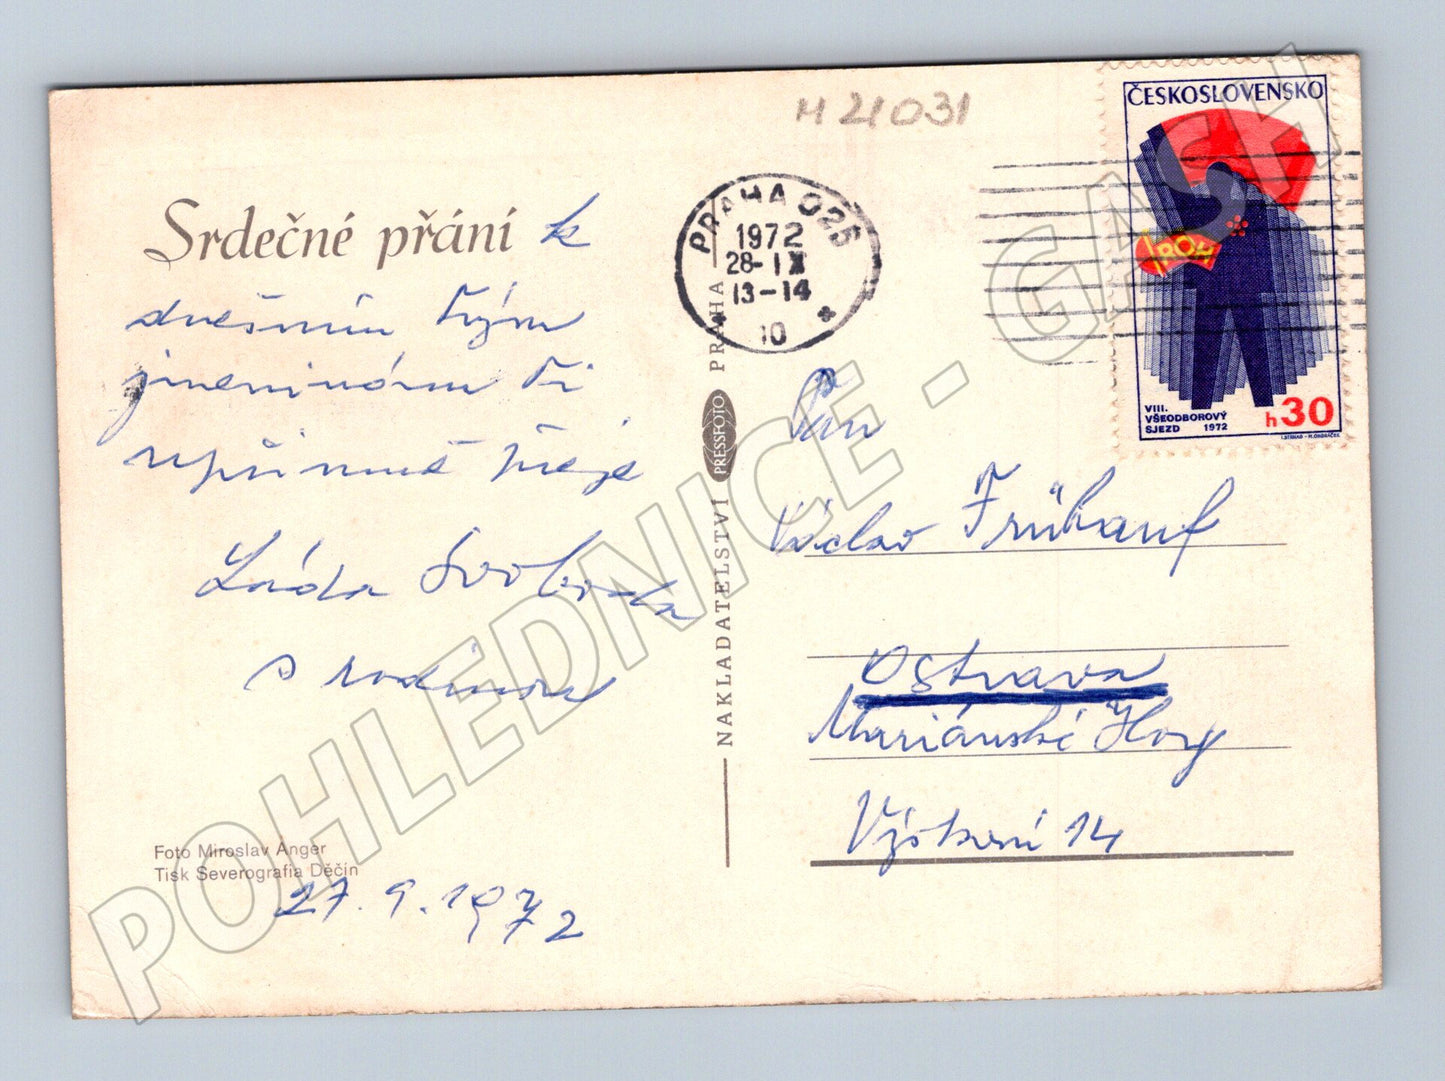 H 21031
ČESKOSLOVENSKO
ROH
VIII.
VŠEODBOROVÝ
SJEZD 1972
h30
PRAHA 025
1972
28-IX
13-14
10
Srdečné přání k
dnešním Tvým
jmeninám Ti
upřímně přeje
Láda Svoboda
s rodinou
27.9.1972
Foto Miroslav Anger
Tisk Severografia Děčín
NAKLADATELSTVÍ PRESSFOTO PRAHA
Pan
Václav Frühauf
Ostrava
Mariánské Hory
Výstavní 14
POHLEDNICE - GASH